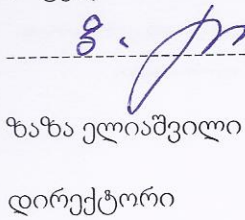 ზაზა ელიაშვილი
დირექტორი